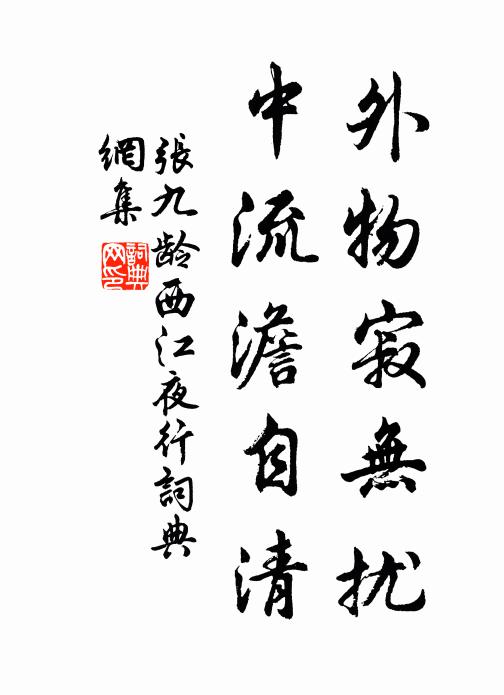 外物寂無扰
中流澹自清
張九龄西江夜行詞典
網集
詞典网印